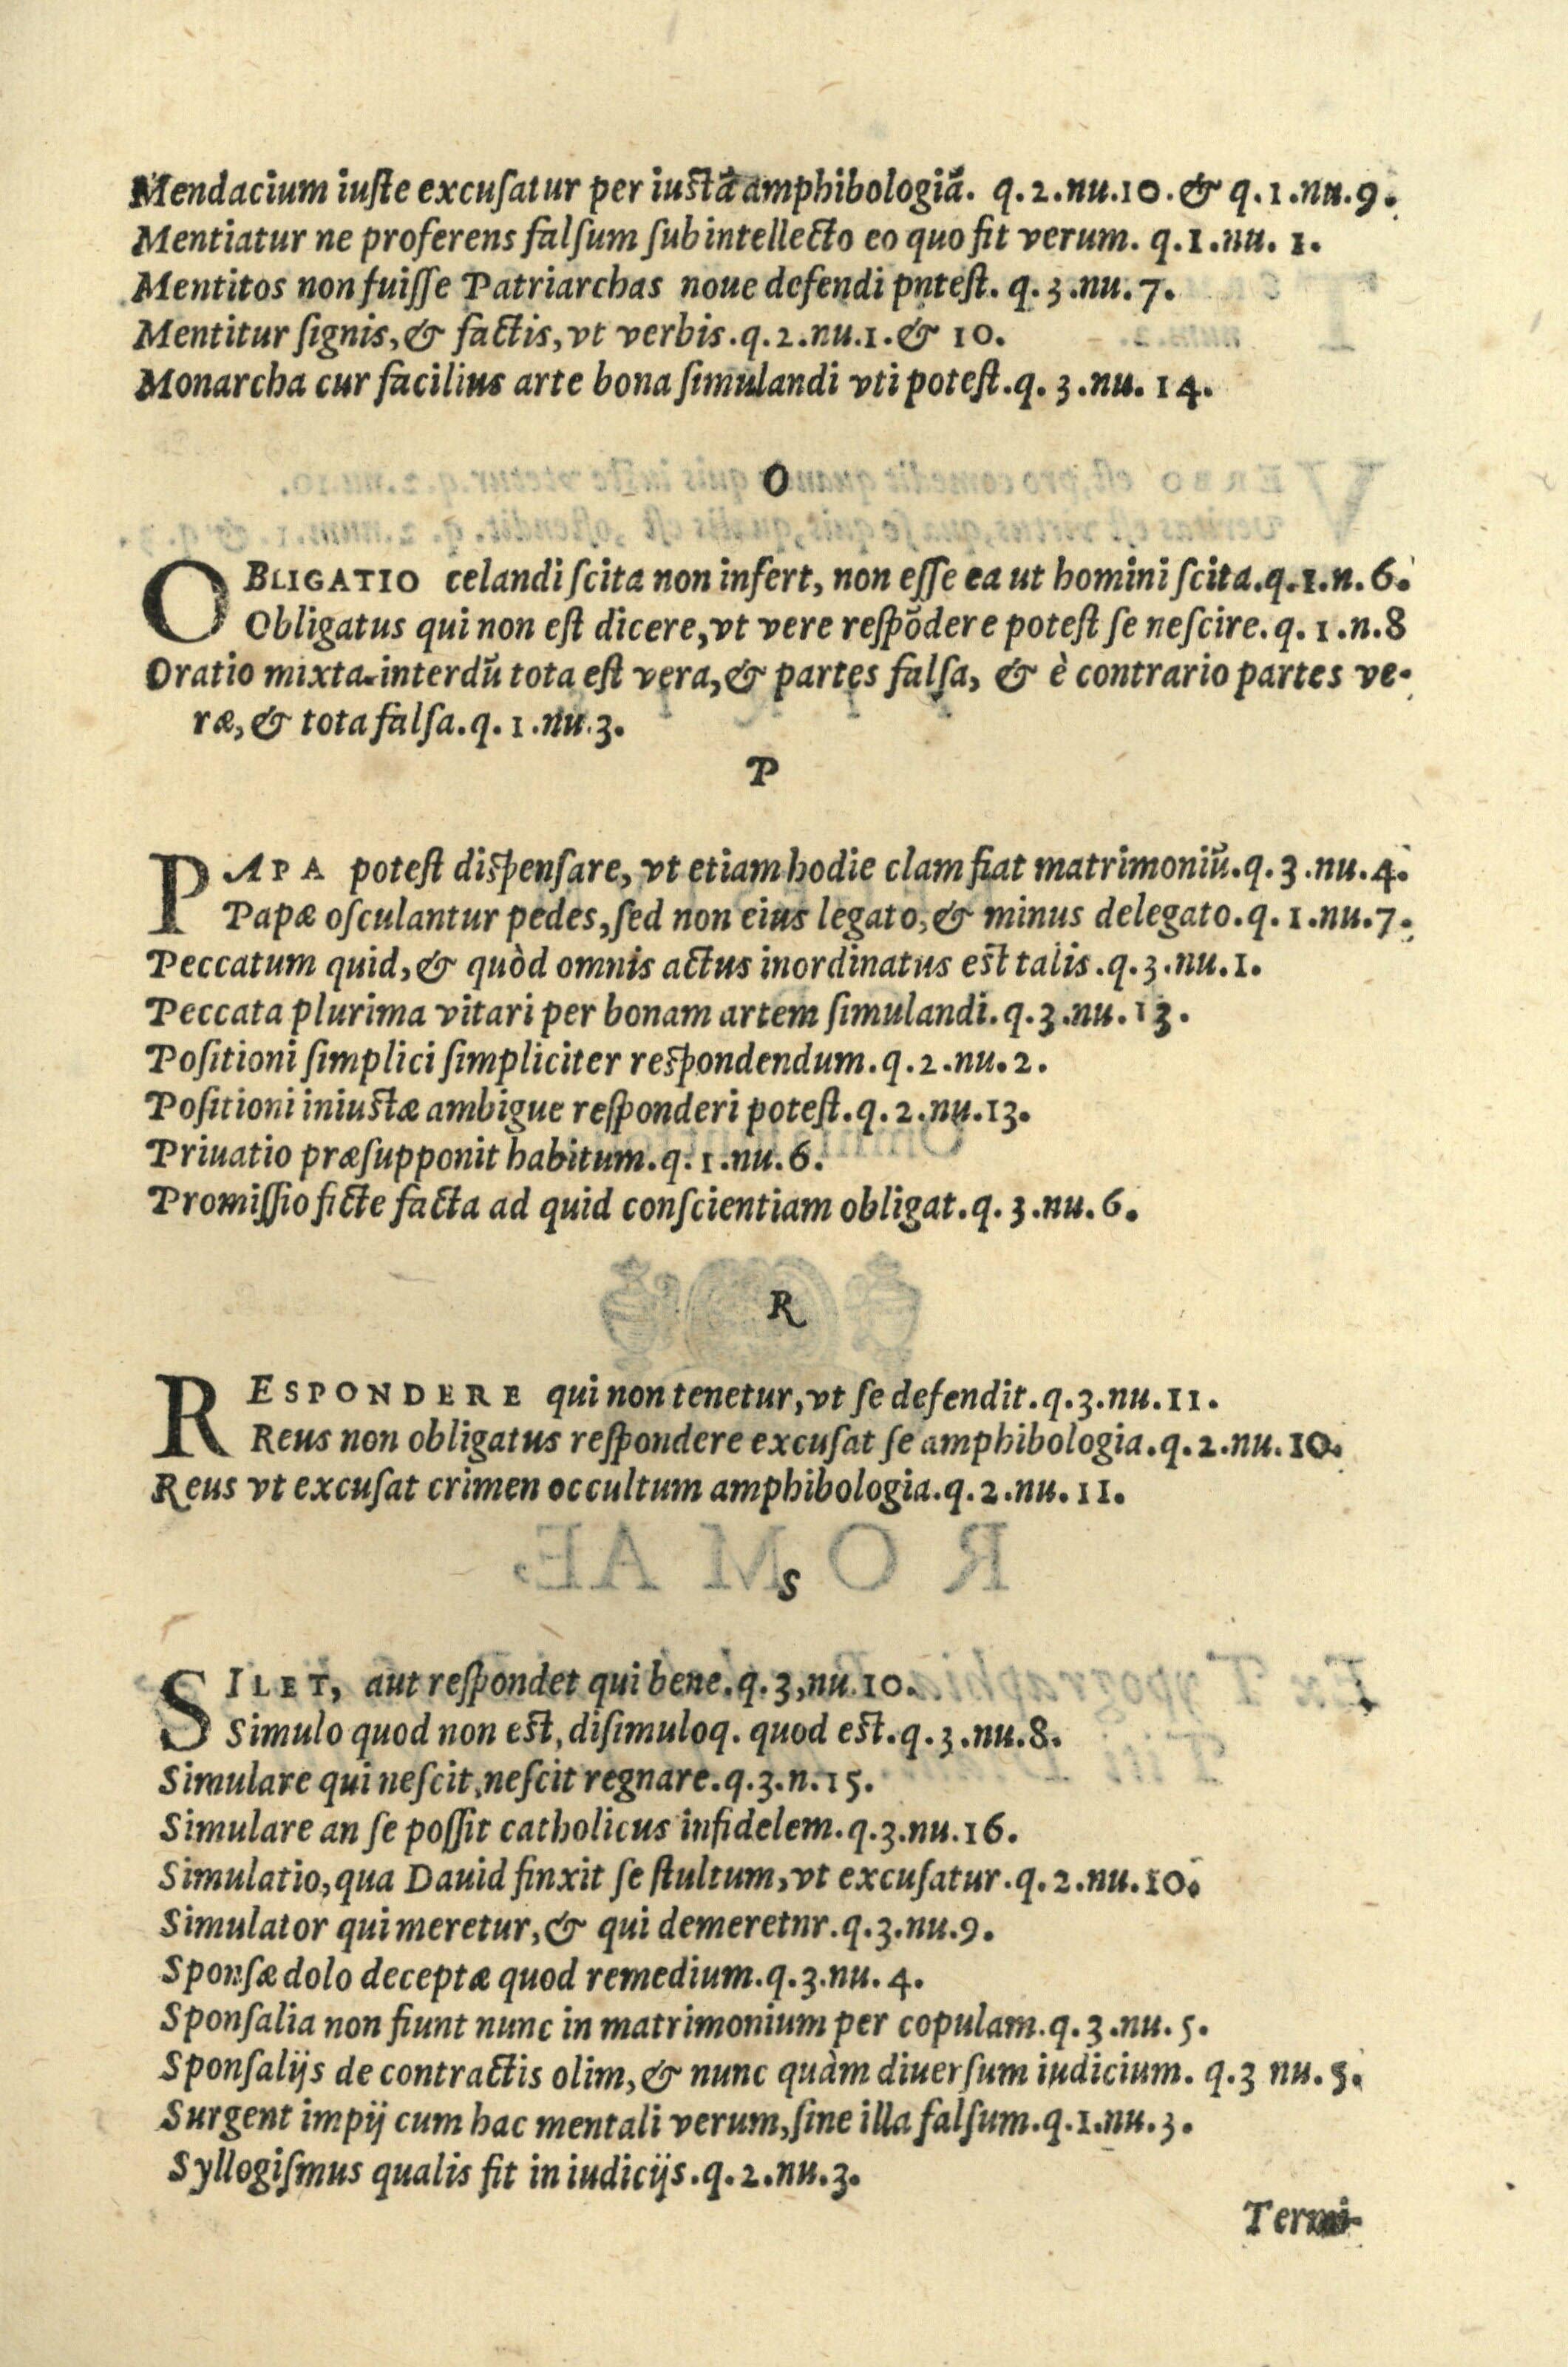 Mendacium iuſte excuſatur per iuſtā amphibologiā. q. 2. nu. 10. & q. 1. nu. 9.
Mentiatur ne proferens falſum ſubintellecto eo quo fit verum. q. 1. nu. 1.
Mentitos non fuiſſe Patriarchas noue defendi pnteſt. q. 3. nu. 7.
Mentitur ſignis, & factis, vt verbis. q. 2. nu. 1. & 10.
Monarcha cur facilius arte bona ſimulandi vti poteſt. q. 3. nu. 14.
O
OBLIGATIO celandi ſcita non infert, non eſſe ea ut homini ſcita. q. 1. n. 6.
Obligatus qui non eſt dicere, vt vere reſpōdere poteſt ſe neſcire. q. 1. n. 8
Oratio mixta interdū tota eſt vera, & partes falſa, & è contrario partes ve-
ræ, & tota falſa. q. 1. nu. 3.
P
PAPA poteſt diſpenſare, vt etiam hodie clam fiat matrimoniū. q. 3. nu. 4.
Papæ oſculantur pedes, ſed non eius legato, & minus delegato. q. 1. nu. 7.
Peccatum quid, & quòd omnis actus inordinatus eſt talis. q. 3. nu. 1.
Peccata plurima vitari per bonam artem ſimulandi. q. 3. nu. 13.
Poſitioni ſimplici ſimpliciter reſpondendum. q. 2. nu. 2.
Poſitioni iniuſtæ ambigue reſponderi poteſt. q. 2. nu. 13.
Priuatio præſupponit habitum. q. 1. nu. 6.
Promiſſio ficte facta ad quid conſcientiam obligat. q. 3. nu. 6.
R
RESPONDERE qui non tenetur, vt ſe defendit. q. 3. nu. 11.
Reus non obligatus reſpondere excuſat ſe amphibologia. q. 2. nu. 10.
Reus vt excuſat crimen occultum amphibologia. q. 2. nu. 11.
S
SILET, aut reſpondet qui bene. q. 3, nu. 10.
Simulo quod non eſt, diſimuloq. quod eſt. q. 3. nu. 8.
Simulare qui neſcit, neſcit regnare. q. 3. n. 15.
Simulare an ſe poſſit catholicus infidelem. q. 3. nu. 16.
Simulatio, qua Dauid finxit ſe ſtultum, vt excuſatur. q. 2. nu. 10.
Simulator qui meretur, & qui demeretnr. q. 3. nu. 9.
Sponſæ dolo deceptæ quod remedium. q. 3. nu. 4.
Sponſalia non fiunt nunc in matrimonium per copulam. q. 3. nu. 5.
Sponſalijs de contractis olim, & nunc quàm diuerſum iudicium. q. 3 nu. 5.
Surgent impij cum hac mentali verum, ſine illa falſum. q. 1. nu. 3.
Syllogiſmus qualis fit in iudicijs. q. 2. nu. 3.
Termi-